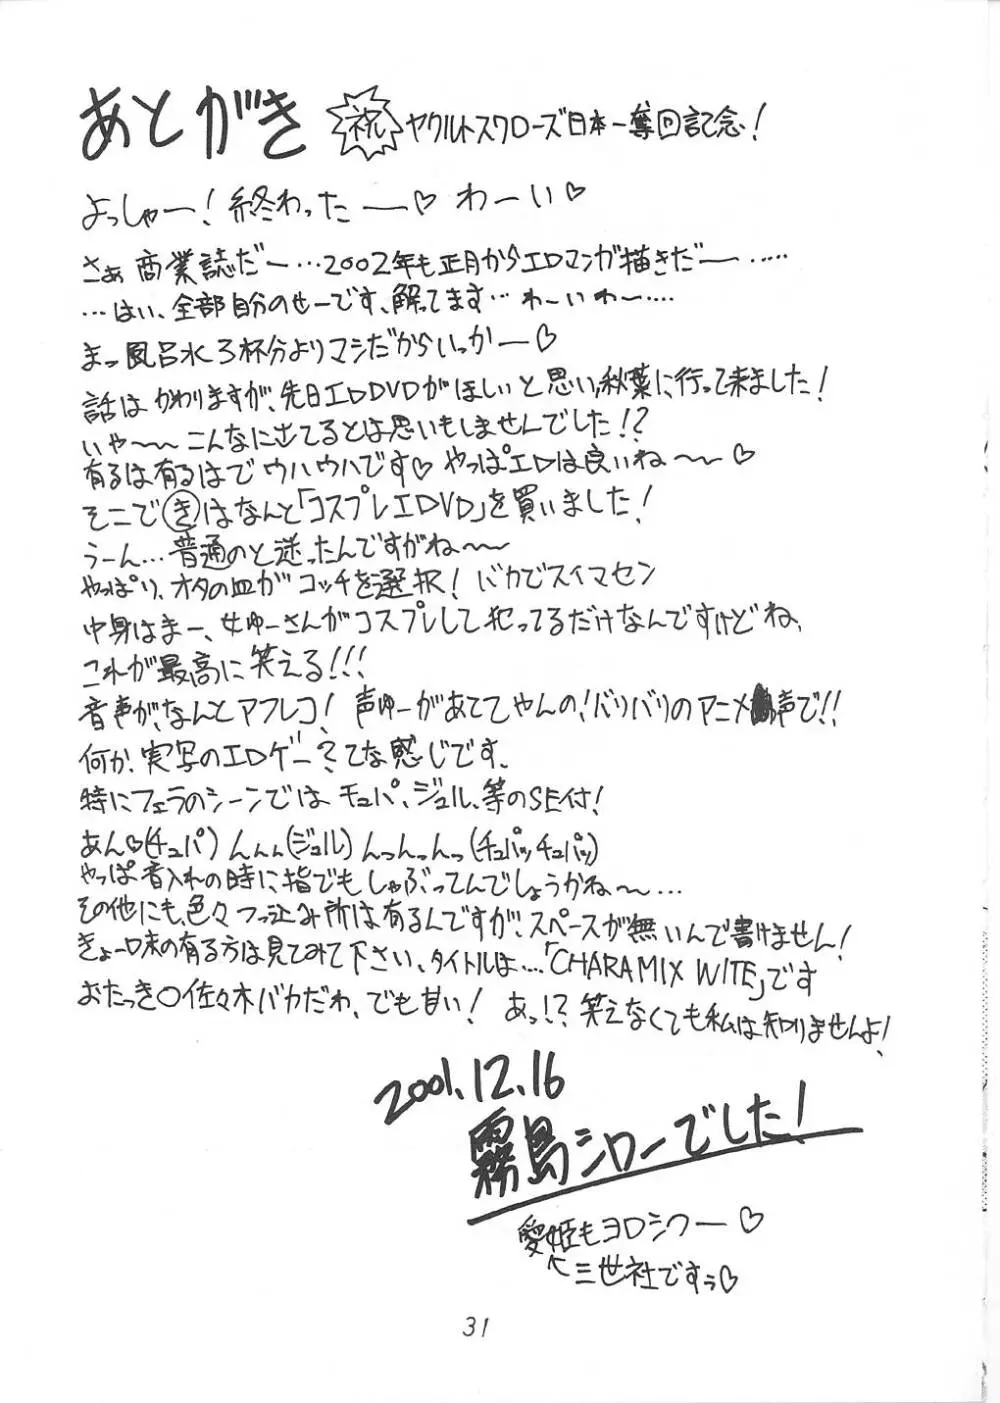 あとがき 祝 ヤクルトスワローズ日本一奪回記念!
よっしゃー!終わったー♡ わーい♡
さぁ商業誌だー…2002年も正月からエロマンガ描きだー……
…はい、全部自分のせーです、解てます… わーいわー……
まっ風呂水3杯分よりマシだからいっかー♡
話はかわりますが、先日エロDVDがほしいと思い、秋葉に行って来ました!
いや〜〜こんなに出てるとは思いもしませんでした!?
有るは有るはでウハウハです♡ やっぱエロは良いね〜〜♡
そこできはなんと「コスプレエロDVD」を買いました!
うーん…普通のと迷ったんですがね〜〜
やっぱり、オタの血がコッチを選択! バカでスイマセン
中身はまー、女ゆーさんがコスプレして犯ってるだけなんですけどね、
これが最高に笑える!!!
音声が、なんとアフレコ! 声ゆーがあててやんの!バリバリのアニメ声で!!
何か、実写のエロゲー?てな感じです、
特にフェラのシーンでは チュパ、ジュル、等のSE付!
あん♡(チュパ) んんん(ジュル) んっんっんっ(チュパッチュパッ)
やっぱ音入れの時に指でもしゃぶってんでしょうかね〜…
その他にも、色々つっ込み所は有るんですが、スペースが無いんで書けません!
きょー味の有る方は見てみて下さい、タイトルは…「CHARAMIX WITE」です
おたっき〇佐々木バカだわ、でも甘い! あっ!?笑えなくても私は知りませんよ!
2001.12.16
霧島シローでした!
愛姫もヨロシクー♡
↖三世社ですぅ♡
31